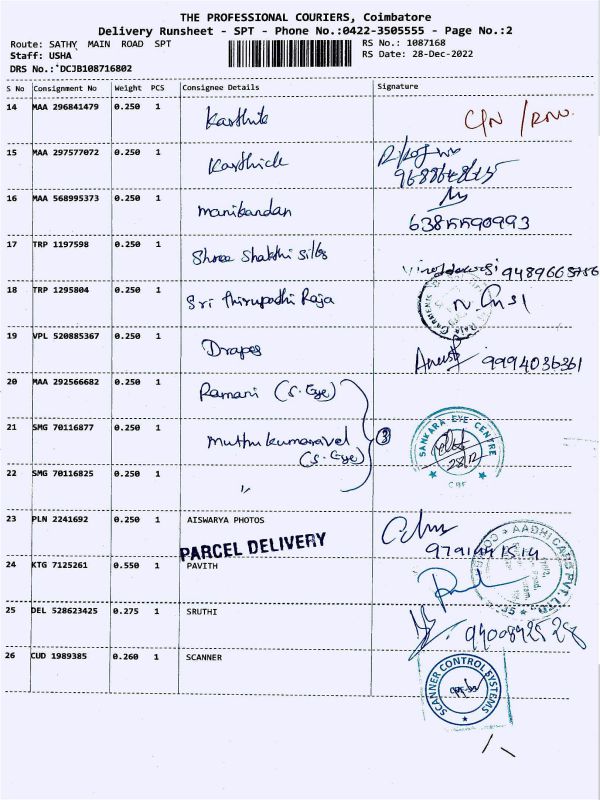 THE PROFESSIONAL COURIERS, Coimbatore
Delivery Runsheet - SPT - Phone No.:0422-3505555 - Page No.:2
Route: SATHY MAIN ROAD SPT RS No.: 1087168
Staff: USHA RS Date: 28-Dec-2022
DRS No.: DCJB108716802
S No Consignment No Weight PCS Consignee Details Signature
14 MAA 296841479 0.250 1 Karthik
15 MAA 297577072 0.250 1 Karthick
16 MAA 568995373 0.250 1 manikandan
17 TRP 1197598 0.250 1 Shree Shakthi Silks
18 TRP 1295804 0.250 1 Sri Thirupathi Raja
19 VPL 520885367 0.250 1 Drapes 9994036361
20 MAA 292566682 0.250 1 Ramani (S. Eye)
21 SMG 70116877 0.250 1 Muthukumaravel (S. Eye) ③ SANKARA EYE CENTRE 28/12 CBF
22 SMG 70116825 0.250 1 〃
23 PLN 2241692 0.250 1 AISWARYA PHOTOS
PARCEL DELIVERY
24 KTG 7125261 0.550 1 PAVITH
25 DEL 528623425 0.275 1 SRUTHI
26 CUD 1989385 0.260 1 SCANNER SCANNER CONTROL SYSTEMS